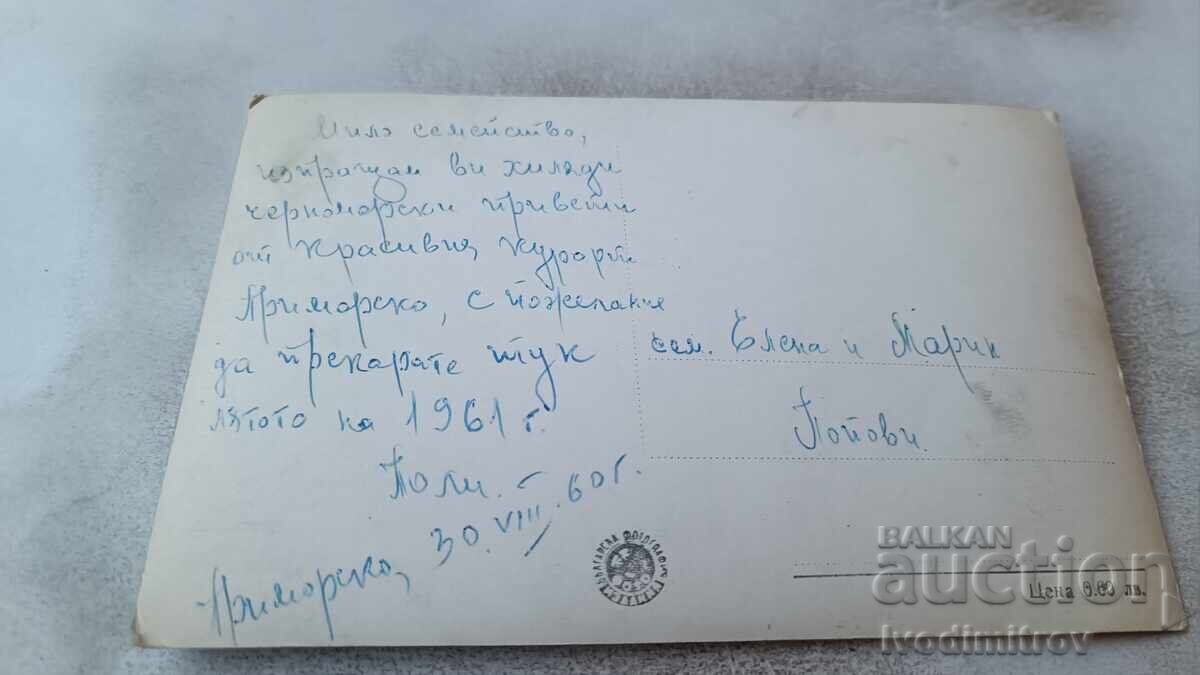 Мило семейство,
изпращам ви хиляди
черноморски привети
от красивия курорт
Приморско, с пожелание
да прекарате тук
лятото на 1961 г.
Поли.
Приморско, 30.VIII.60г.
сем. Елена и Марин
Попови.
БЪЛГАРСКА ФОТОГРАФИЯ
Цена 0.60 лв.
BALKAN
auction
Ivodimitrov